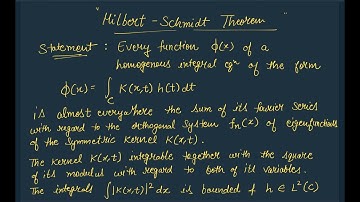 "Hilbert-Schmidt Theorem"
Statement : Every function ϕ(x) of a
homogenous integral eqⁿ of the form
ϕ(x) = ∫_C K(x,t) h(t) dt
is almost everywhere the sum of its fourier series
with regard to the orthogonal system fₙ(x) of eigenfunctions
of the symmetric kernel K(x,t).
The kernel K(x,t) integrable together with the square
of its modulus with regard to both of its variables.
The integrals ∫|K(x,t)|² dx is bounded & h ∈ L²(C)